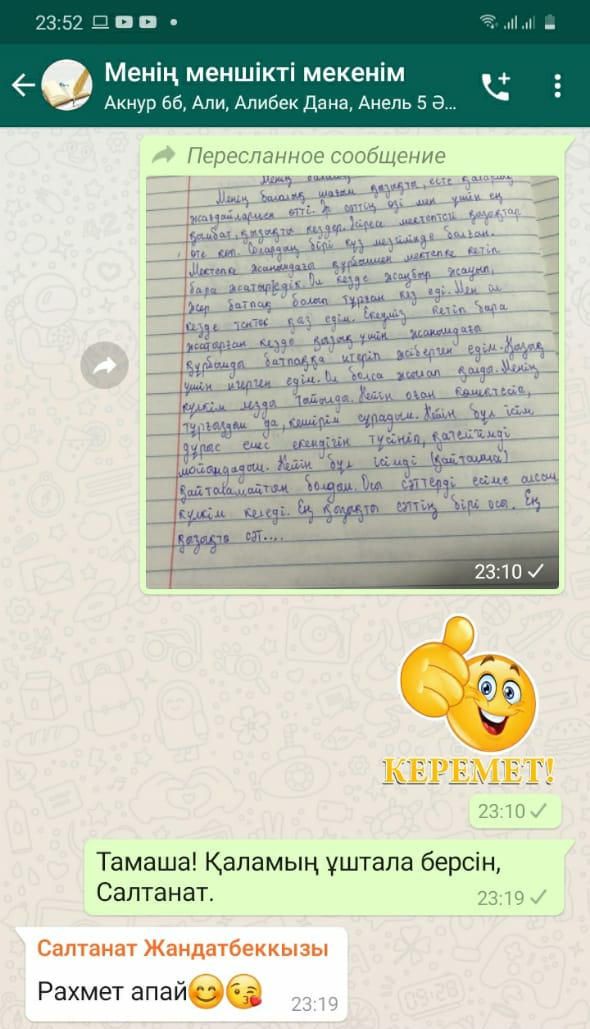 23:52
Менің меншікті мекенім
Акнур 6б, Али, Алибек Дана, Анель 5 Ә...
Пересланное сообщение
Менің балалық
Менің балалық шағым қызықты, есте қаларлық
жағдайлармен өтті. Әр сәттің өзі мен үшін ең
қымбат, қызықты кездер. Әсіресе мектептегі қызықтар
өте көп. Солардың бірі күз мезгілінде болған.
Мектепке жанымдағы құрбыммен мектепке кетіп
бара жатыр едік. Ол кезде жаңбыр жауып,
жер батпақ болып тұрған кез еді. Мен ол
кезде тентек қыз едім. Екеуміз кетіп бара
жатырған кезде қызық үшін жанымдағы
құрбымды батпаққа итеріп жіберген едім. Қызық
үшін итерген едім. Ол болса жылап қалды. Менің
күлкім лезде тыйылды. Кейін оған көмектесіп,
тұрғыздым да, кешірім сұрадым. Кейін бұл ісім
дұрыс емес екендігін түсініп, қателігімді
мойындадым. Кейін бұл ісімді (қайталама)
қайталамайтын болдым. Осы сәттерді есіме алсам
күлкім келеді. Ең қызықты сәттің бірі осы. Ең
қызықты сәт....
23:10
КЕРЕМЕТ!
23:10
Тамаша! Қаламың ұштала берсін,
Салтанат.
23:19
Салтанат Жандатбеккызы
Рахмет апай
23:19